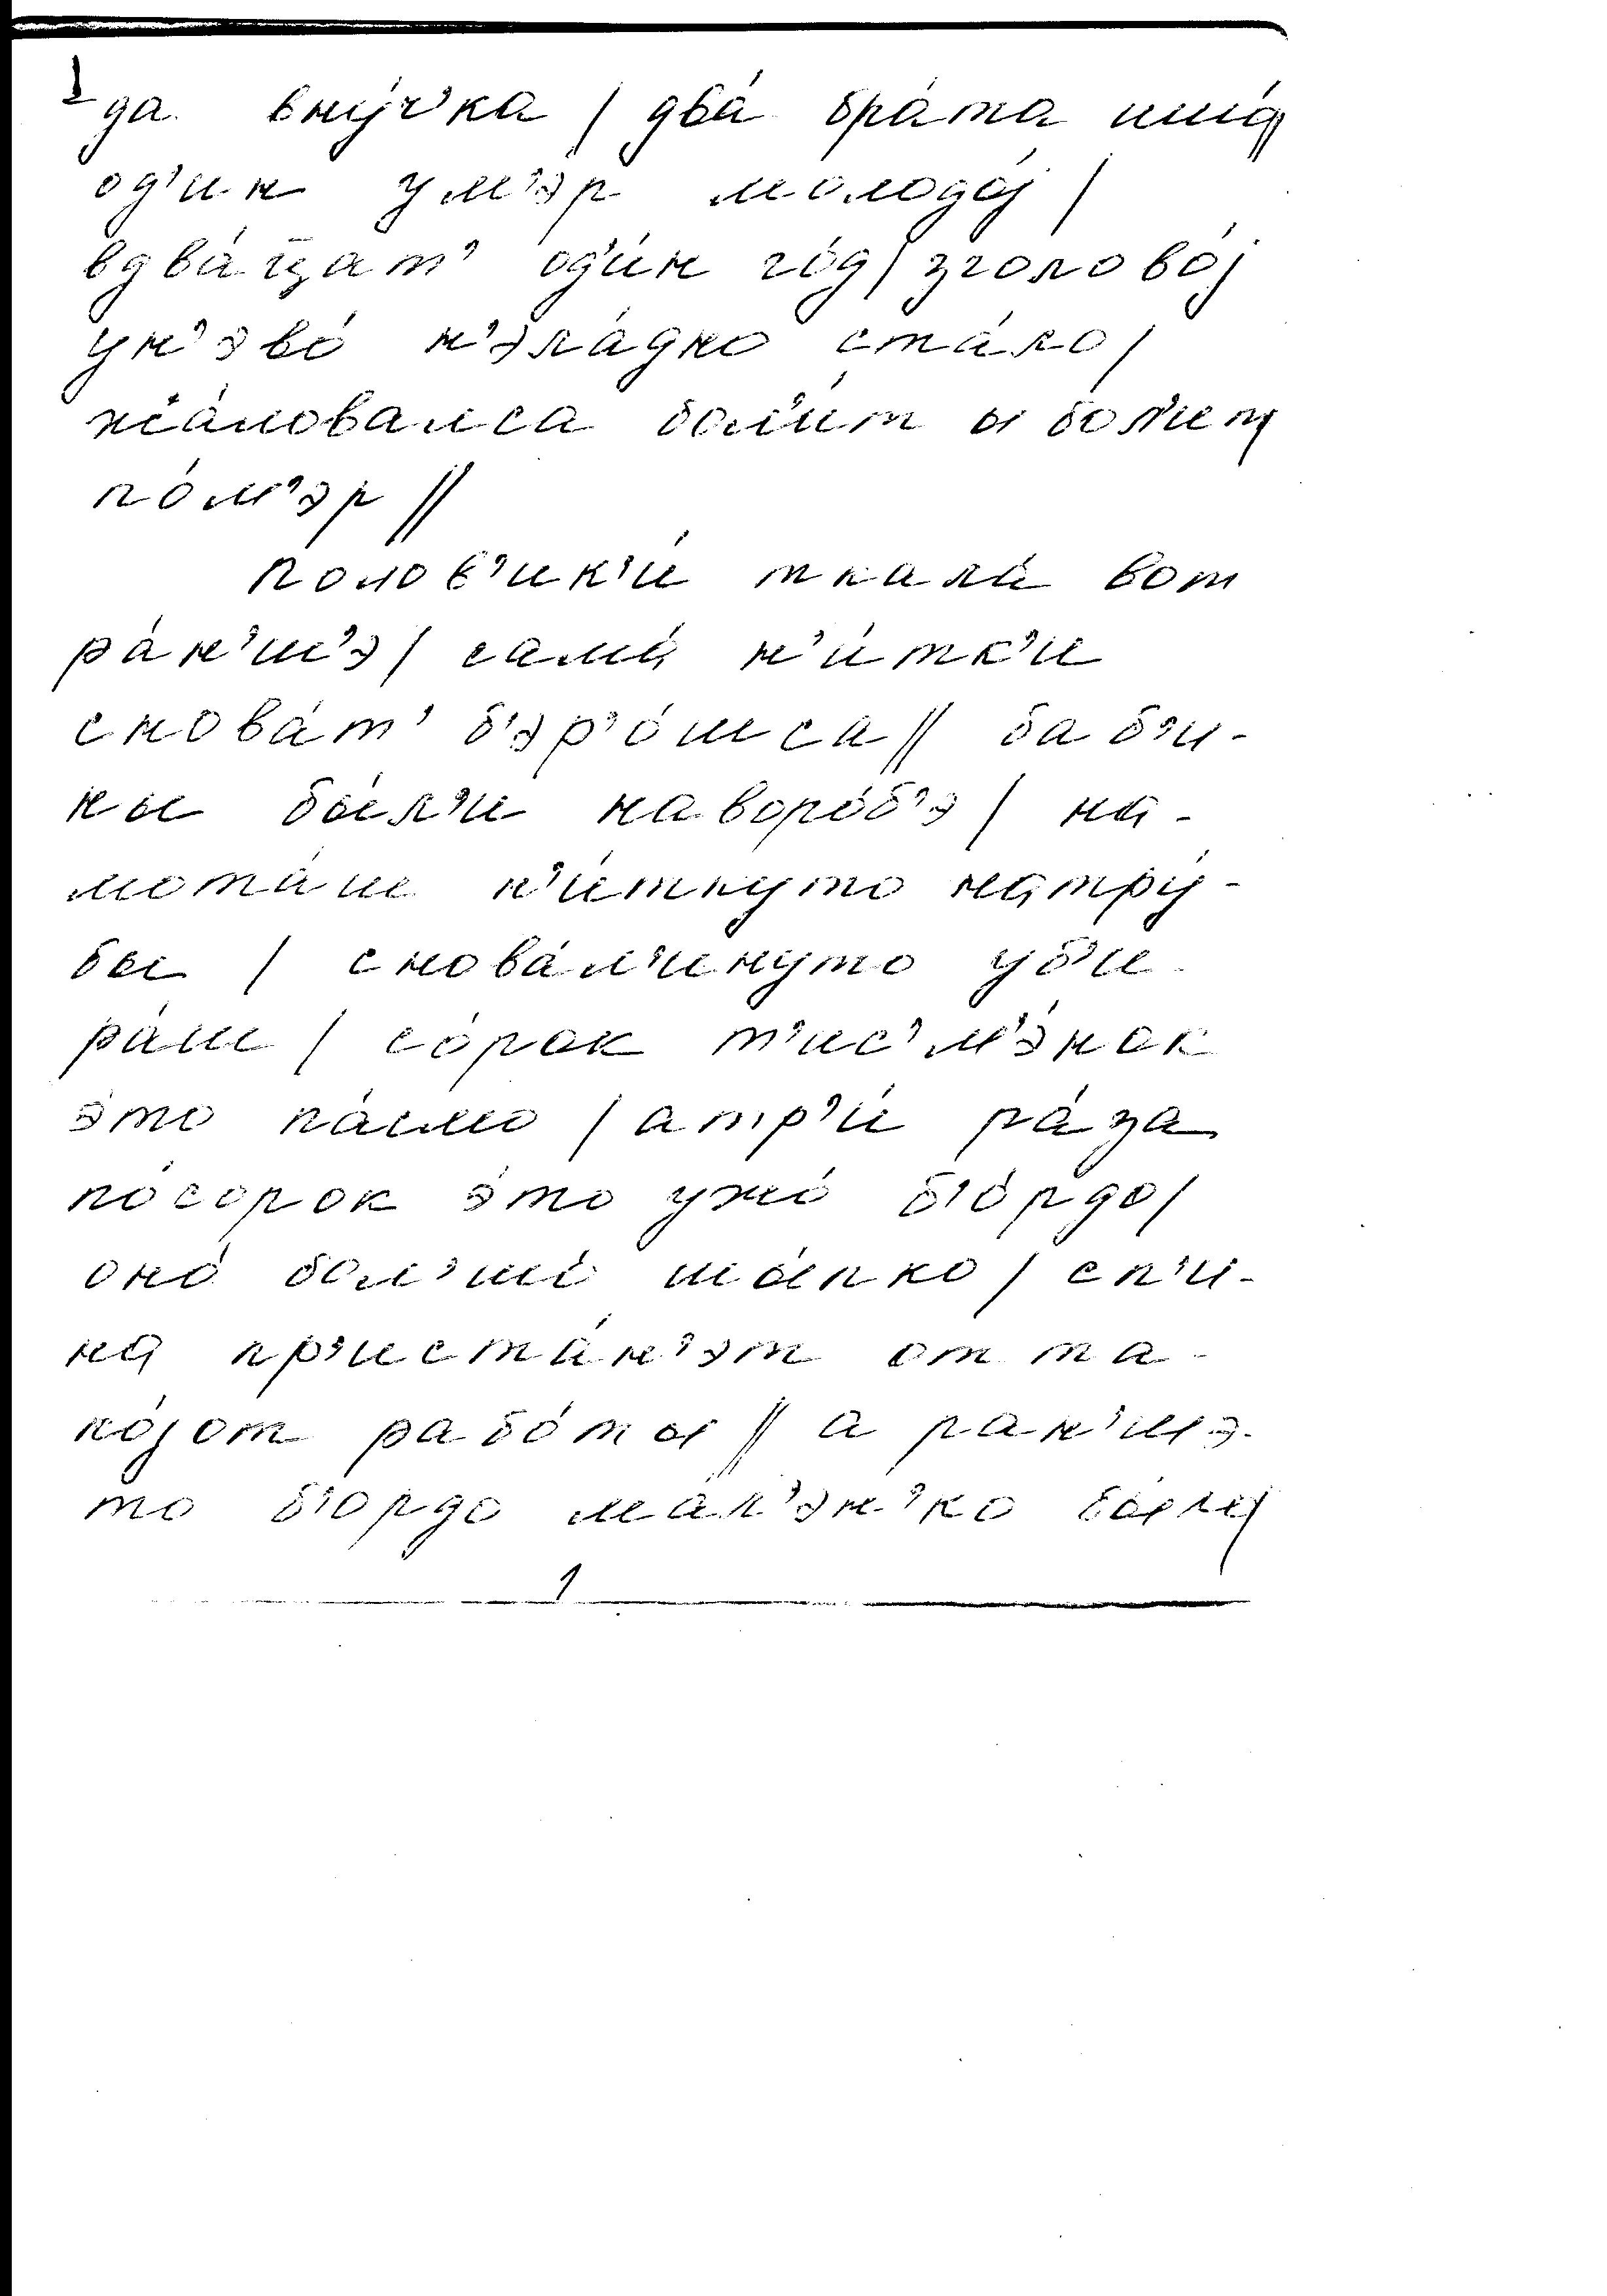 да вну́ч'ка / два́ бра́та
од'ин ум'эр молодо́j /
вдва́ц̄ат' од'и́н го́д / зголово́j
ун'эво́ н'эла́дно ста́ло /
жа́ловалса бол'и́т ы бол'и́т
по́м'эр //
полов'ик'и́ ткала́ вот
ра́н'ш'э / сама́ н'и́тк'и
снова́т' б'эр'о́шса // баб'и-
ны бы́л'и навороб'э́ / на-
мота́ш н'и́ткуто натру́-
бы / снова́л'инуто уб'и
ра́ш / со́рок т'ис'м'э́нок
э́то па́смо / атр'и́ ра́за
по́сорок э́то ужо́ б'о́рдо /
оно́ бол'шо́ шы́пко / сп'и-
на́ пр'иста́н'эт от та-
ко́jот рабо́ты // а ран'шэ-
то б'о́рдо ма́л'эн'ко бы́ло /
1